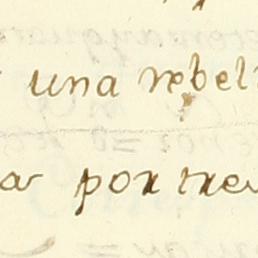 una rebel
a por tre